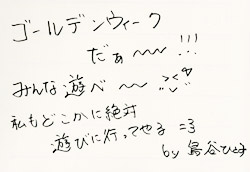 ゴールデンウィーク
だぁ〜〜 !!!
みんな遊べ〜〜 ><
私もどこかに絶対
遊びに行ってやる =3
by 鳥谷ひとみ